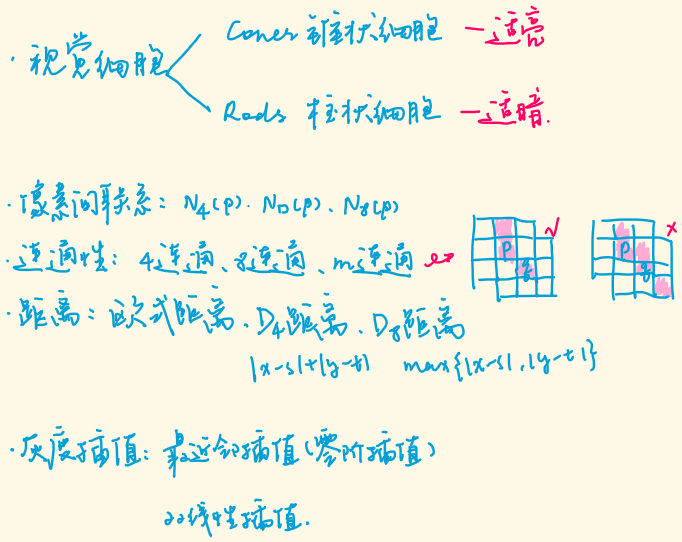 Cones 锥状细胞 —适亮
· 视觉细胞
Rods 柱状细胞 —适暗.
· 像素间联系: N4(p). ND(p)、N8(p)
· 连通性: 4连通、8连通、m连通 → P q √ P q ×
· 距离: 欧式距离、D4距离、D8距离
|x-s|+|y-t| max{|x-s|,|y-t|}
· 灰度插值: 最近邻插值(零阶插值)
双线性插值.